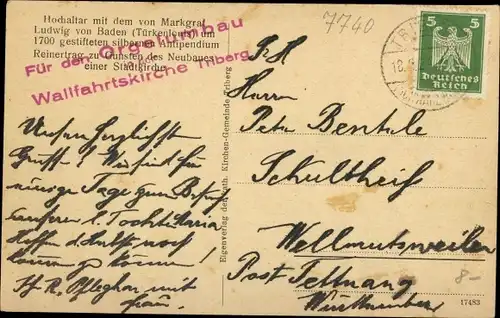 Hochaltar mit dem von Markgraf
Ludwig von Baden (Türkenlouis) um
1700 gestifteten silbernen Antipendium
Reinertrag zu Gunsten des Neubaues
einer Stadtkirche
Für den Orgelumbau
Wallfahrtskirche Triberg
Unsere herzlichste
Grüsse! Wir sind für
einige Tage zum Besuch
unserer l. Tochter Maria
Hoffen
kommen zu können
mit
Frau.
Eigenverlag der Kath. Kirchen-Gemeinde Triberg
7740
5 5
Deutsches
Reich
Herrn
Peter
Schultheiß
Wellmutsweiler
Post Tettnang
Württemberg
8-
17483